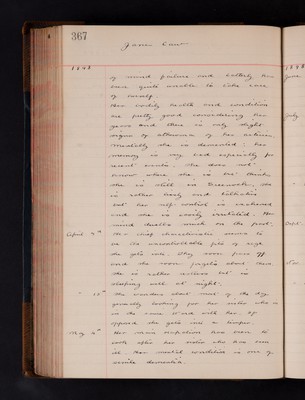 367
Jane Law
1898
of mind failure and latterly has
been quite unable to take care
of herself.
Her bodily health and condition
are pretty good considering her
years and there is only slight
signs of atheroma of her arteries.
Mentally she is demented: her
memory is very bad especially for
recent events; she does not
know where she is but thinks
she is still in Greenock; she
is rather lively and talkative
but her self control is weakened
and she is easily irritated. Her
mind dwells much on the past.
April 4th Her chief characteristic seems to
be the uncontrollable fits of rage
she gets into. They soon pass off
and she soon forgets about them.
She is rather restless but is
sleeping well at night.
" 18th She wanders about most of the day
generally looking for her sister who is
in the same ward with her. If
opposed she gets into a temper.
May 4th Her sister has even to
look after her sister who has even
it. Her mental condition is one of
senile dementia.
1898
June
July
Sept.
Nov.